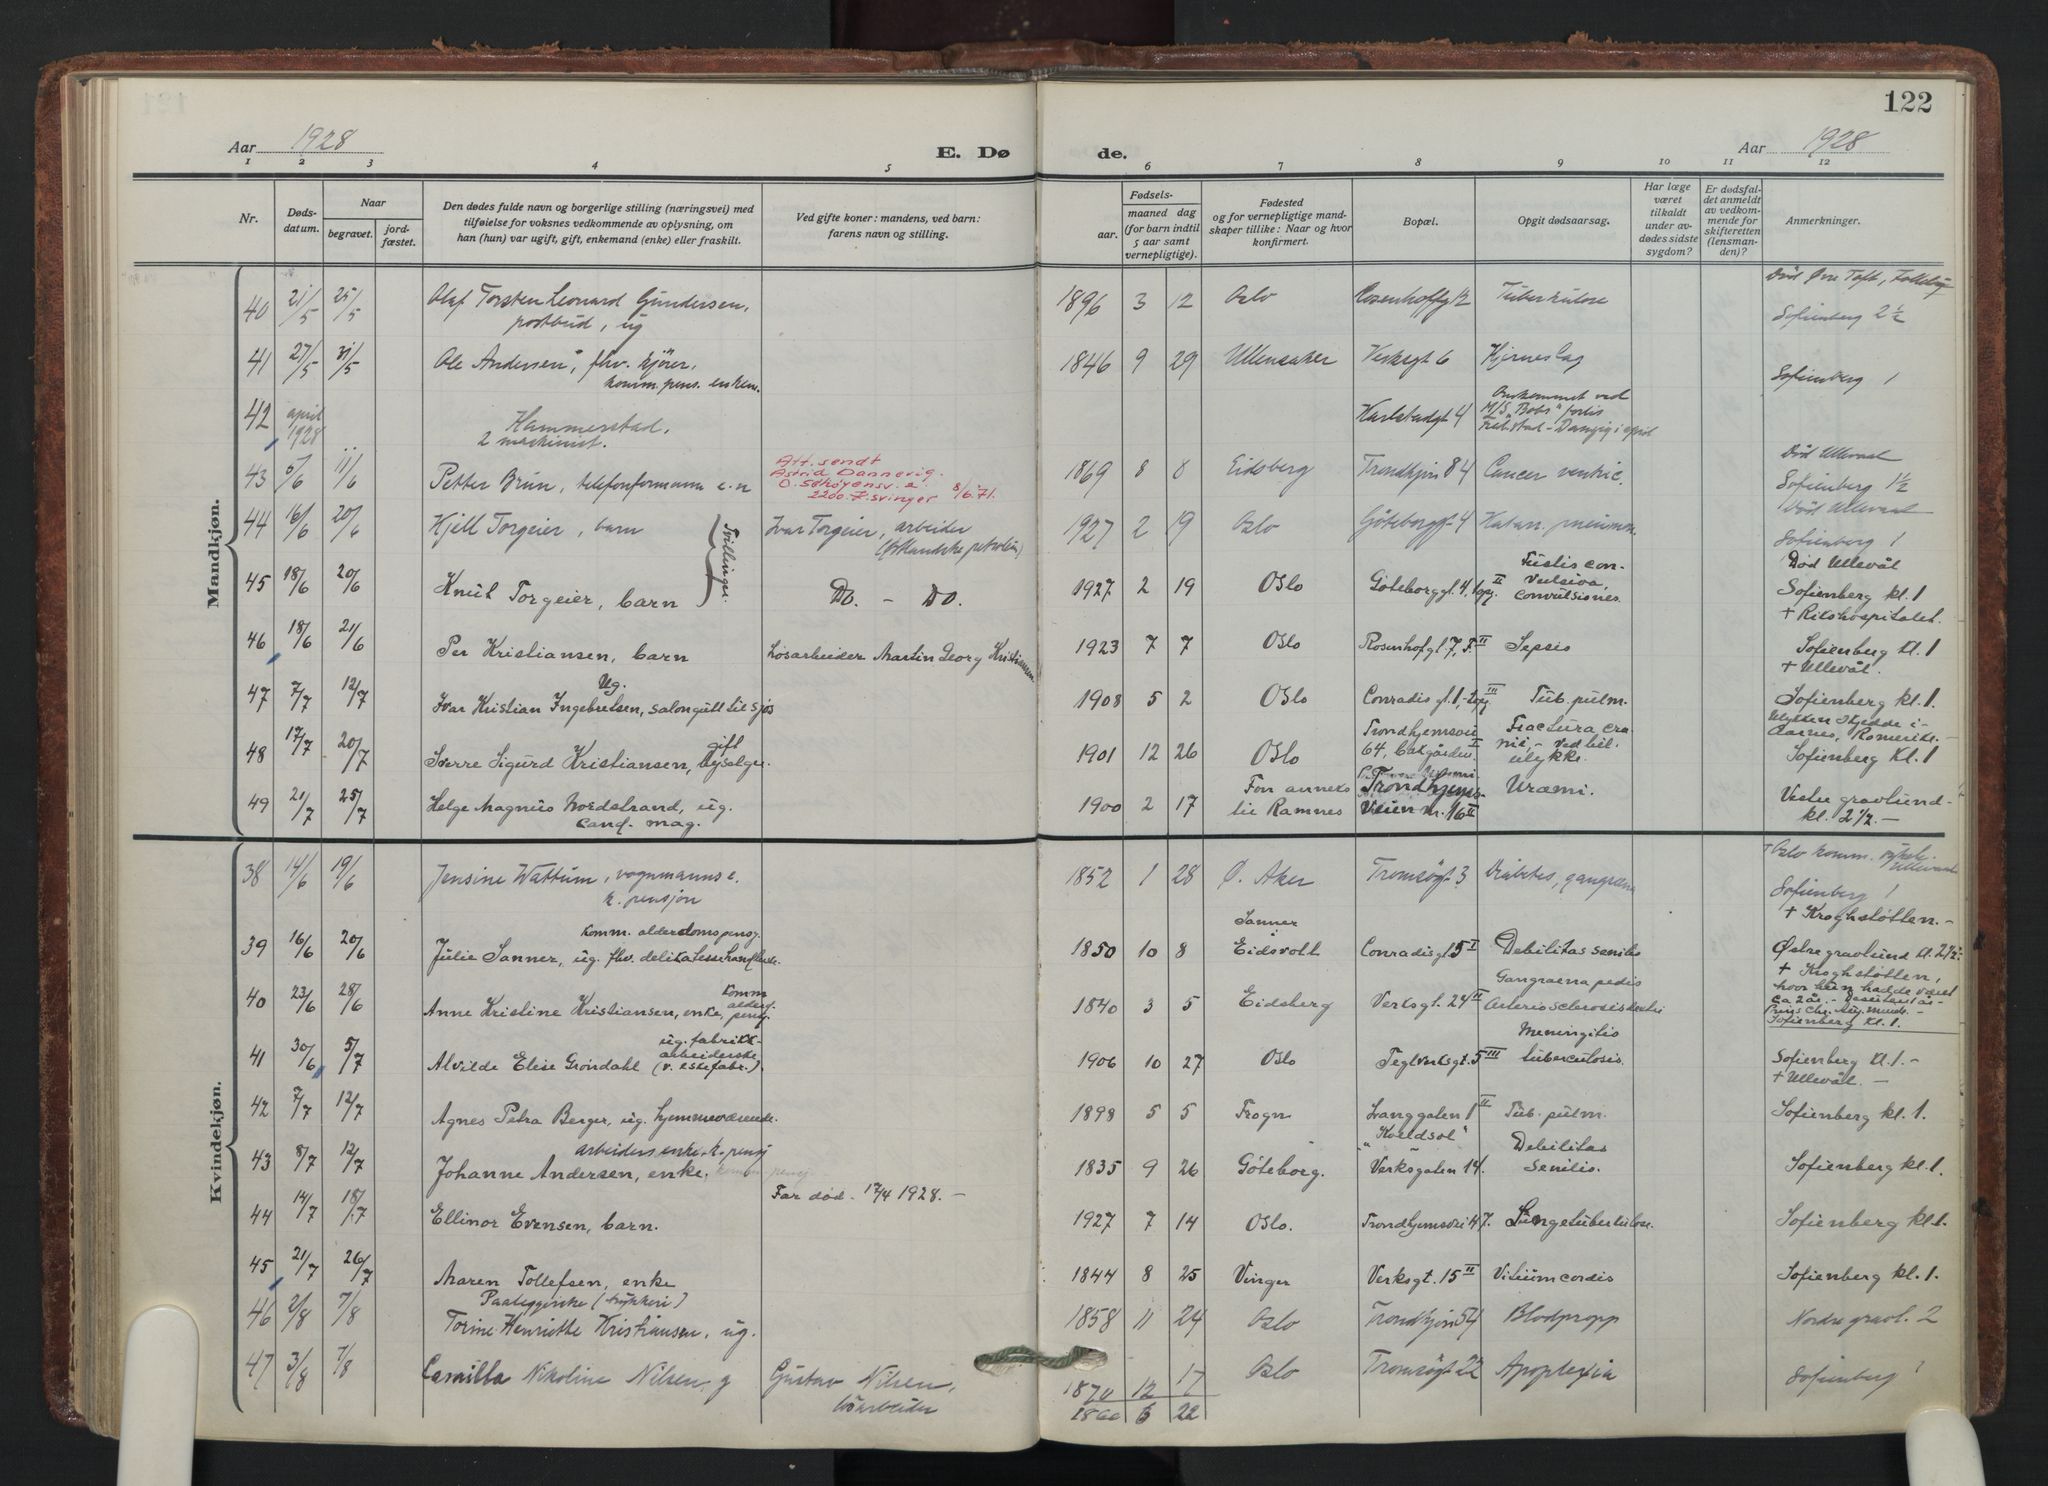 122
Aar 1928
E. Dø
de.
Aar 1928
1 2 3 4 5 6 7 8 9 10 11 12
Nr.
Døds-
datum.
Naar
begravet.
jord-
fæstet.
Den dødes fulde navn og borgerlige stilling (næringsvei) med
tilføielse for voksnes vedkommende av oplysning, om
han (hun) var ugift, gift, enkemand (enke) eller fraskilt.
Ved gifte koner: mandens, ved barn:
farens navn og stilling.
Fødsels-
aar.
maaned dag
(for barn indtil
5 aar samt
vernepligtige).
Fødested
og for vernepligtige mand-
skaper tillike: Naar og hvor
konfirmert.
Bopæl.
Opgit dødsaarsag.
Har læge
været
tilkaldt
under av-
dødes sidste
sygdom?
Er dødsfal-
det anmeldt
av vedkom-
mende for
skifteretten
(lensman-
den)?
Anmerkninger.
Mandkjøn.
40 21/5 25/5 Olaf Torsten Leonard Gundersen,
postbud, ug
1896 3 12 Oslo Rosenhoffg 12 Tuberkulose
Sofienberg 2 1/2
41 27/5 31/5 Ole Andersen, fhv. kjører,
komm. pens. enkem.
1846 9 29 Ullensaker Verksgt 6 Hjerneslag
Sofienberg 1
42 april
1928
Hammerstad,
2 maskinist.
Karlstadgt 4
Omkommet ved
M/S "Bobs" forlis
Fredrikstad - Danzig i april
43 5/6 11/6 Petter Brun, telefonformann e.n
Att. sendt
Astrid Dannevig.
O. Sekøyensv. 2.
2200 K.svinger 8/6.71.
1869 8 8 Eidsberg Trondhjsv 84 Cancer ventric.
Död Ullevaal
Sofienberg 1 1/2
44 16/6 20/6 Kjell Torgeier, barn
Tvillinger.
Ivar Torgeier, arbeider
(Østlandske petroleum)
1927 2 19 Oslo Göteborggt 4 Katarr. pneumon.
Död Ullevaal
Sofienberg 1
45 18/6 20/6 Knut Torgeier, barn
Do. - Do.
1927 2 19 Oslo Göteborggt. 4, opg. II
Tussis con-
vulsiva,
convulsiones.
Död Ullevål
Sofienberg kl. 1
46 18/6 21/6 Per Kristiansen, barn
Løsarbeider Martin Georg Kristiansen
1923 7 7 Oslo Rosenhofgt. 7, 5 II Sepsis
+ Rikshospitalet.
Sofienberg kl. 1
47 7/7 12/7 Ug.
Ivar Kristian Ingebretsen, salongutt til sjøs
1908 5 2 Oslo Conradis gt. 1, opg III Tub. pulm.
+ Ullevål.
Sofienberg kl. 1.
48 17/7 20/7 gift
Sverre Sigurd Kristiansen, avsalger
1901 12 26 Oslo
Trondhjemsvei
64, bakgården I
Fractura cra
nii, - ved bil-
ulykke.
Ulykken skjedde i
Aarnes, Romerike. -
Sofienberg kl. 1
49 21/7 25/7 Helge Magnus Nordstrand, ug.
cand. mag.
1900 2 17 Fon anneks
til Ramnes
Trondhjems-
veien nr. 16 II
Uræmi.
Vestre gravlund -
kl. 2 1/2. -
Kvindekjøn.
38 14/6 19/6 Jensine Wattum, vognmanns e.
k. pensjon
1852 1 28 Ø. Aker Tromsøgt 3 Diabetes, gangræna
+ Oslo komm. sykeh.
Ullevaal
Sofienberg 1
39 16/6 20/6 komm. alderdomspensj.
Julie Sanner, ug. fhv. delikatessehandlerske.
1850 10 8 Sanner
Eidsvoll
Conradisgt 5 I Debilitas senilis
+ Kroghstøtten. -
Østre gravlund kl. 2 1/2.
40 23/6 28/6 Anne Kristine Kristiansen, enke, komm
alders
pensj
1840 3 5 Eidsberg Verksgt. 24 II
Gangraena pedis
Arteriosclerosis
+ Kroghstøtten,
hvor hun hadde været
ca 2 år.
Sofienberg kl. 1.
41 30/6 5/7 Alvilde Elise Grøndahl ug. fabrikk-
arbeiderske
(v. eskefabr.).
1906 10 27 Oslo Teglverksgt. 5 III
Meningitis
tuberculosis.
Sofienberg kl. 1. -
42 7/7 12/7 Agnes Petra Berger, ug. hjemmeværende.
1898 5 5 Frogn Langgaten 1 II
"Koldsol"
Tub. pulm.
+ Ullevål. -
Sofienberg kl. 1.
43 8/7 12/7 arbeiders enke k. pensj
Johanne Andersen, enke.
1835 9 26 Göteborg. Verksgaten 14.
Debilitas
senilis.
Sofienberg kl. 1.
44 14/7 18/7 Ellinor Evensen, barn.
Far död. 17/4 1928. -
1927 7 14 Oslo. Trondhjemsvei 47. Lungetuberkulose.
Sofienberg kl. 1.
45 21/7 26/7 Maren Tollefsen, enke
1844 8 25 Vinger Verksgt. 15 II Vitium cordis
Sofienberg kl. 1.
46 2/8 7/8 Paaleggerske (trykkeri)
Torine Henriette Kristiansen, ug.
1858 11 24 Oslo Trondhjsv 54 Blodpropp
Nordre gravl. 2
47 3/8 7/8 Camilla Nikoline Nilsen, g
Gustav Nilsen,
løsarbeider
1870 12 17
1860 6 22
Oslo Tromsøgt 22 Apoplexia
Sofienberg 1